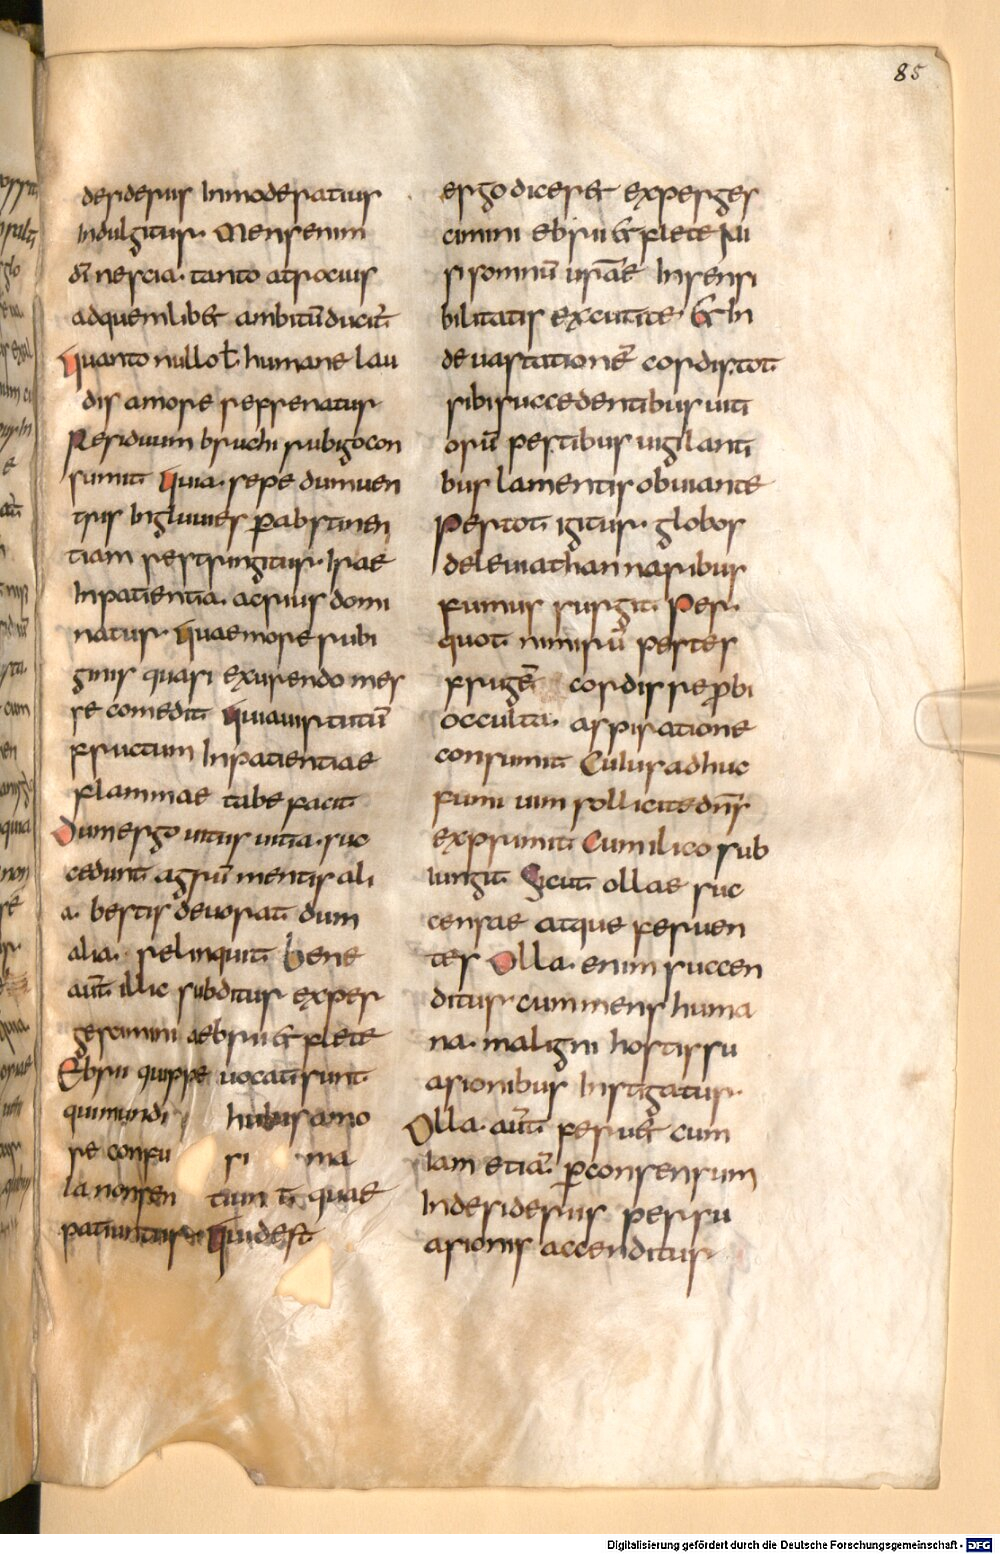 85
desiderius Inmoderatius
Indulgitur. Mensenim
dī nescia. tanto atrocius
adquemlib& ambitū ducit̄
quanto nullo t̄. humane lau
dis amore refrenatur
Residuum bruchi rubigo con
sumit quia. sepe dum uen
tris Ingluuies ꝑ abstinen
tiam restringitur. Irae
Inpatientia. acrius domi
natur. quae more rubi
ginis quasi exurendo mes
se comedit quia uirtutū
fructum Inpatientiae
flammae tabe facit
Dum ergo uitiis uitia. suc
cedunt agrum mentis ali
a. bestis deuorat dum
alia. relinquit bene
aut̄ illic subditur exper
gescimini aebrii & flete
Ebrii quippe uocati sunt
qui mundi huius amo
re confu si ma
la non sen tiunt quae
patiuntur quid est
ergo dicer& experges
cimini ebrii & flete Ni
si somnū urāe Insensi
bilitatis excutite & In
de uastationē cordis. tot
sibi succedentibus uiti
orū pestibus uigilanti
bus lamentis obuiante
Per tot igitur. globos
de leuiathan naribus
fumus surgit. Per.
quot nimirū pestes
frugē cordis reꝓbi
occulta. aspiratione
consumit Cuius adhuc
fumi uim sollicite dnſ
exprimit Cum ilico sub
iungit Sicut ollae suc
censae atque feruen
tes Olla. enim succen
ditur cum mens huma
na. maligni hostis su
asionibus Instigatur.
Olla. aut̄ feru& cum
Iam etiā. ꝑ consensum
In desideriis persu
asionis accenditur
Digitalisierung gefördert durch die Deutsche Forschungsgemeinschaft - DFG